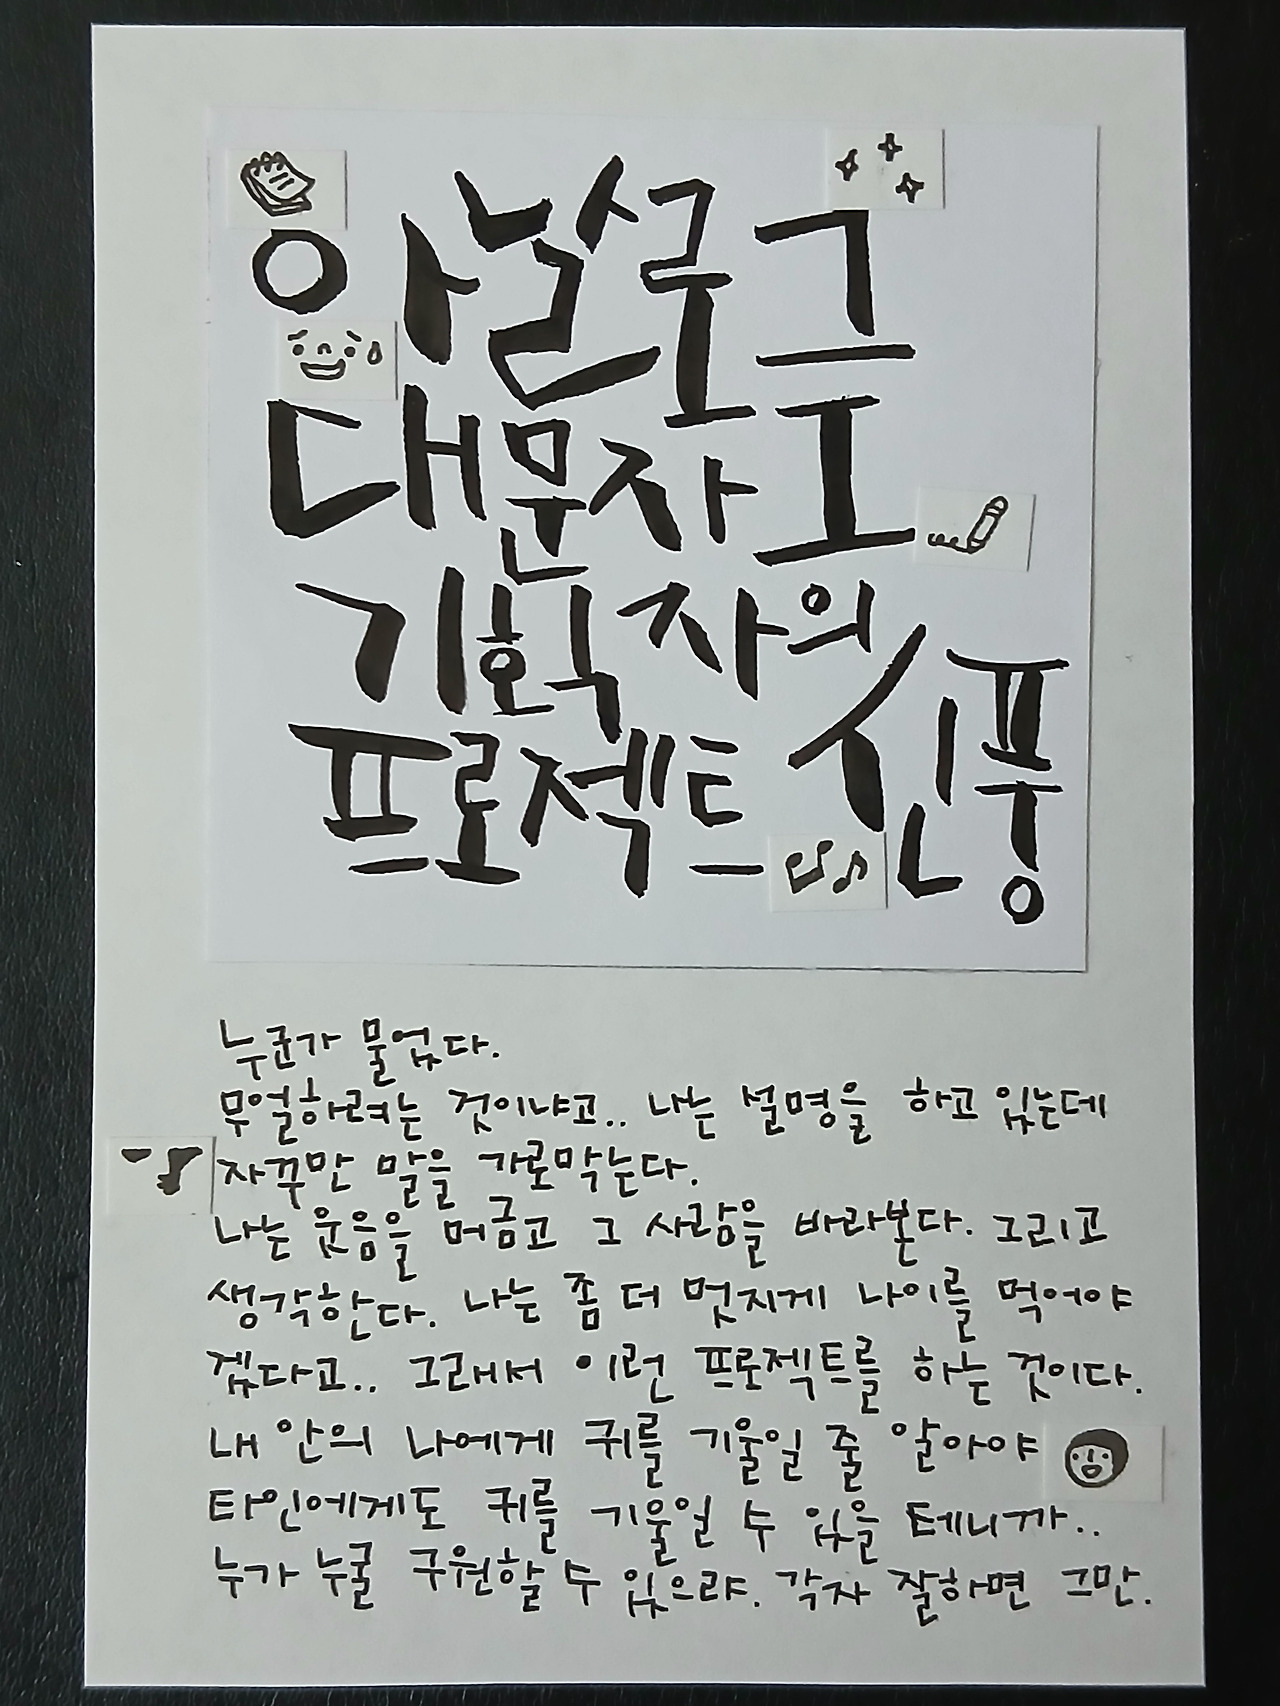 아날로그
대문자 I
기획자의
프로젝트 신풍
누군가 물었다.
무얼하려는 것이냐고.. 나는 설명을 하고 있는데
자꾸만 말을 가로막는다.
나는 웃음을 머금고 그 사람을 바라본다. 그리고
생각한다. 나는 좀 더 멋지게 나이를 먹어야
겠다고.. 그래서 이런 프로젝트를 하는 것이다.
내 안의 나에게 귀를 기울일 줄 알아야
타인에게도 귀를 기울일 수 있을 테니까..
누가 누굴 구원할 수 있으랴. 각자 잘하면 그만.